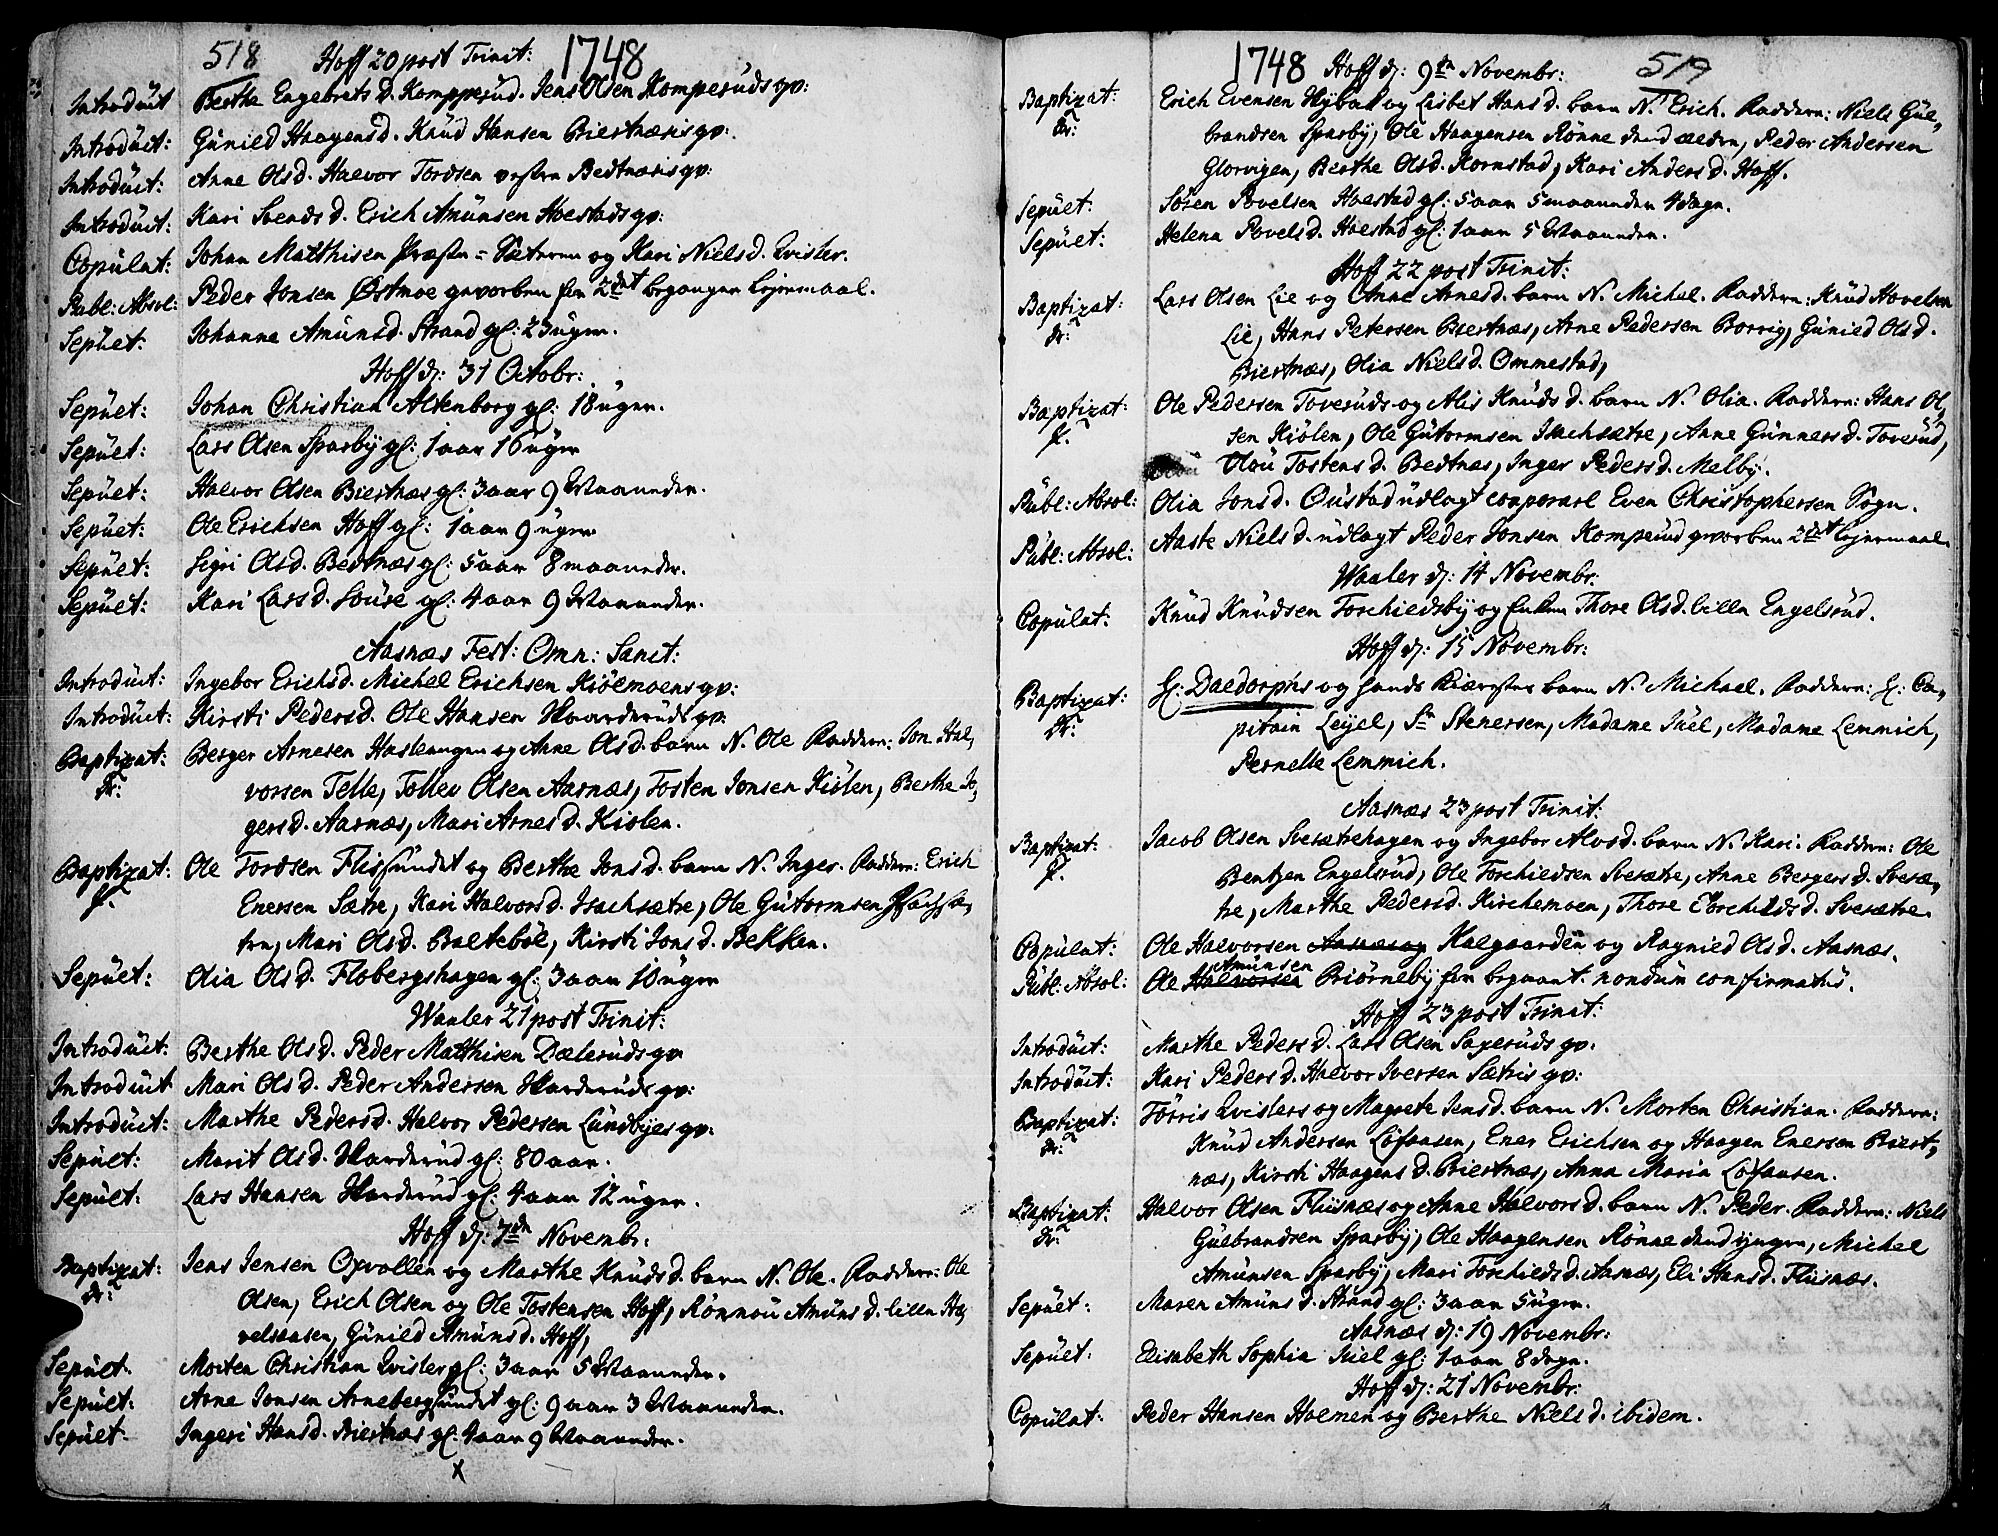 518 Hoff 20 post Trinit: 1748
Introduit Berthe Engebrets D. Kompperud. Jens Olsen Komperuds gv:
Introduit: Gunild Haagens D. Knud Hansen Biertnæsis gv:
Introduit: Anne Ols D. Halvor Tordsen vesten Bedtnæsis gv:
Introduit: Kari Svends D. Erich Amunsen Hoestads gv:
Copulat: Johan Matthisen Præste=Sæteren og Kari Niels D. Qvisler.
Publ: Absol: Peder Jonsen Østmoe gevorben for 2det begangen Lejermaal.
Sepult: Johanne Amunsd. Strand gl: 23 uger.
Hoff d: 31 Octobr:
Sepult: Johan Christian Altenborg gl: 18 uger.
Sepult: Lars Olsen Sparby gl: 1 aar 16 uger
Sepult: Halvor Olsen Biertnæs gl: 3 aar 9 Maaneder.
Sepult: Ole Erichsen Hoff gl: 1 aar 9 uger
Sepult: Sigri Ols D. Bedtnæs gl: 5 aar 8 maaneder.
Sepult: Kari Lars D. Souse gl: 4 aar 9 Maaneder.
Aasnæs Fest: Omn: Sanct:
Introduit: Ingebor Erichs D. Michel Erichsen Kiölmoens gv:
Introduit: Kirsti Peders D. Ole Hansen Haarderuds gv:
Baptizat: Berger Arnesen Hasleengen og Anne Ols D. barn N. Ole Faddere: Jon Hal,
dr: vorsen Telle, Tollev Olsen Aasnæs, Tosten Jonsen Kiölen, Berthe Jo,
gers D. Aasnæs, Mari Arnes D. Kiolen.
Baptizat: Ole Tordsen Flissundet og Berthe Jons D. barn N. Inger. Faddere: Erich
p. Enersen Sætre, Kari Halvors D. Isachsætre, Ole Gutormsen Isachsæ,
tre, Mari Ols D. Baltebøl, Kirsti Jons D. Bekken.
Sepult: Olia Ols D. Flobergshagen gl: 3 aar 10 uger
Waaler 21 post Trinit:
Introduit: Berthe Ols D. Peder Matthisen Dæleruds gv
Introduit Mari Ols D. Peder Andersen Harderuds gv:
Introduit: Marthe Peders D. Halvor Pedersen Lundbyes gv:
Sepult: Marit Ols D. Harderud gl: 80 aar.
Sepult: Lars Hansen Harderud gl: 4 aar 12 uger.
Hoff d: 7de Novembr.
Baptizat: Jens Jensen Opvollen og Marthe Knuds D. barn N. Ole. Faddere: Ole
dr: Olsen, Erich Olsen og Ole Tostensen Hoff, Rönnou Amuns D. lille Ho,
velsaasen, Gunild Amuns D. Hoff,
Sepult Morten Christian Qvisler gl: 3 aar 5 Maaneder.
Sepult: Arne Jonsen Arnebergsundet gl: 9 aar 3 Maaneder.
Sepult Ingeri Hans D. Biertnæs gl: 4 aar 9 Maaneder.
x
1748 Hoff d: 9de Novembr: 519
Baptizat: Erich Evensen Nybak og Lisbet Hans D. barn N. Erich. Faddere: Niels Gul,
dr: brandsen Sparby, Ole Haagensen Rönne dend ældre, Peder Andersen
Glorvigen, Berthe Ols D. Kornstad, Kari Anders D. Hoff.
Sepult: Sören Povelsen Hoestad gl: 5 aar 5 maaneder 4 dage.
Sepult: Helena Povels D. Hoestad gl: 1 aar 5 Maaneder.
Hoff 22 post Trinit:
Baptizat: Lars Olsen Lie og Anne Arnes D. barn N. Michel. Faddere: Knud Hovelsen
dr: Lie, Hans Petersen Biertnæs, Arne Pedersen Borrig, Gunild Ols D.
Biertnæs, Olia Niels D. Ommestad,
Baptizat: Ole Pedersen Toveruds og Alis Knuds D. barn N. Olia. Faddere: Hans Ol,
p. sen Kiölen, Ole Gutormsen Isachsætre, Anne Gunners D. Toverud,
Olou Tostens D. Bedtnæs, Inger Peders D. Melby.
Publ: Absol: Olia Jons D. Oustad udlagt corporael Even Christophersen Sogn.
Publ: Absol: Aaste Niels D. udlagt Peder Jonsen Komperud geworben 2det Lejermaal.
Waaler d: 14 Novembr:
Copulat: Knud Knudsen Torchieldsby og Enken Thore Ols D. lille Engelsrud.
Hoff d: 15 Novembr:
Baptizat: Hr: Daldorphs og hands Kiæreste barn N. Michael. Faddere: Hr: Ca,
dr: pitain Leyel, Sr Stenersen, Madame Juel, Madame Lemmich,
Pernelle Lemmich.
Aasnæs 23 post Trinit:
Baptizat: Jacob Olsen Svesætrehagen og Ingebor Alvs D. barn N. Kari. Faddere: Ole
p. Bentzen Engelsrud, Ole Torchieldsen Svesætre, Anne Bergers D. Svesæ,
tre, Marthe Peders D. Kirchemoen, Thore Torchilds D. Svesætre.
Copulat: Ole Halvorsen Aasnæs og Kalgaarden og Ragnild Ols D. Aasnæs.
Amunsen
Publ: Absol: Ole Halvorsen Biörneby for begaaet nondum confirmatus.
Hoff 23 post Trinit:
Introduit: Marthe Peders D. Lars Olsen Saxeruds gv.
Introduit: Kari Peders D. Halvor Iversen Sætris gv:
Baptizat: Törris Qvislers og Magrete Jens D. barn N. Morten Christian. Faddere:
dr: Knud Andersen Løfaasen, Ener Erichsen og Haagen Enersen Biert,
næs, Kirsti Haagens D. Biertnæs, Anna Maria Løfaasen.
Baptizat: Halvor Olsen Fliisnæs og Anne Halvors D. barn N. Peder. Faddere: Niels
dr: Gulbrandsen Sparby, Ole Haagensen Rönne dend yngre, Michel
Amunsen Sparby, Mari Torchields D. Aasnæs, Eli Hans D. Fliisnæs.
Sepult: Maren Amuns D. Strand gl: 3 aar 5 uger.
Aasnæs d: 19 Novembr:
Sepult: Elisabeth Sophia Kiel gl: 1 aar 8 dage.
Hoff d: 21 Novembr:
Copulat: Peder Hansen Holmen og Berthe Niels D. ibidem.